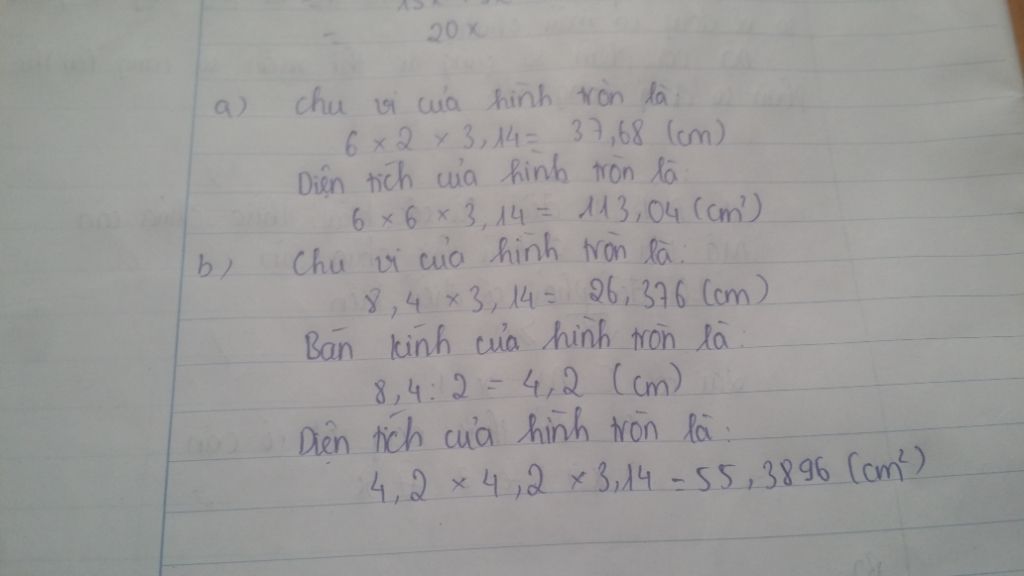 = 20x
a) Chu vi của hình tròn là
6 × 2 × 3,14 = 37,68 (cm)
Diện tích của hình tròn là:
6 × 6 × 3,14 = 113,04 (cm²)
b) Chu vi của hình tròn là:
8,4 × 3,14 = 26,376 (cm)
Bán kính của hình tròn là:
8,4 : 2 = 4,2 (cm)
Diện tích của hình tròn là:
4,2 × 4,2 × 3,14 = 55,3896 (cm²)